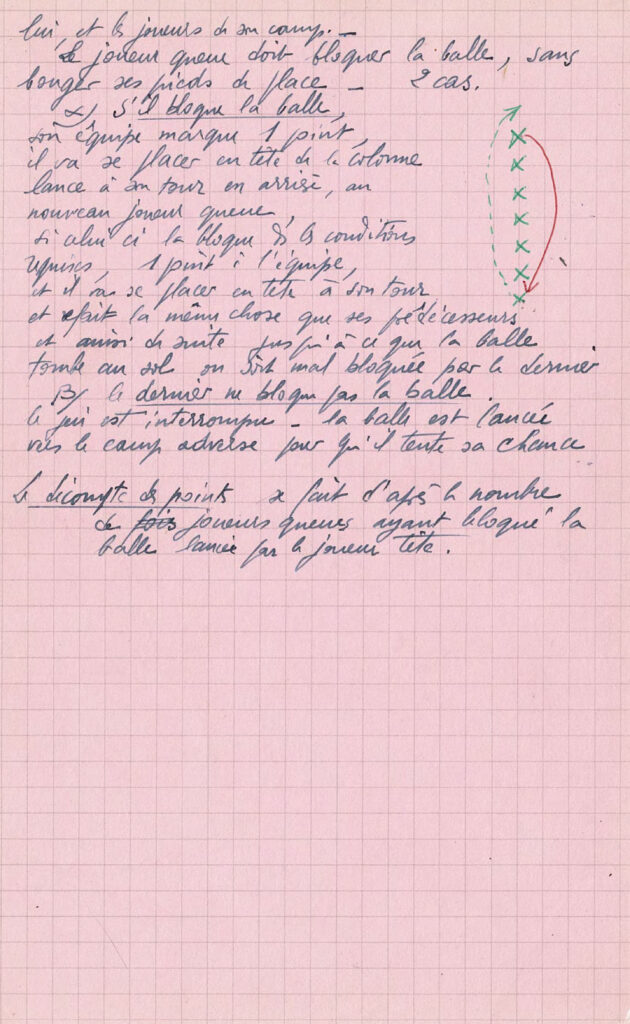 lui, et les joueurs de son camp. –
Le joueur queue doit bloquer la balle, sans
bouger ses pieds de place – 2 cas.
α/ S'il bloque la balle,
son équipe marque 1 point,
il va se placer en tête de la colonne
lance à son tour en arrière, au
nouveau joueur queue,
si celui ci la bloque ds les conditions
requises, 1 point à l'équipe,
et il va se placer en tête à son tour
et refait la même chose que ses prédécesseurs
et ainsi de suite jusqu'à ce que la balle
tombe au sol ou soit mal bloquée par le dernier
β/ le dernier ne bloque pas la balle.
le jeu est interrompu – la balle est lancée
vers le camp adverse pour qu'il tente sa chance
Le décompte des points se fait d'après le nombre
de fois joueurs queues ayant bloqué la
balle lancée par le joueur tête.